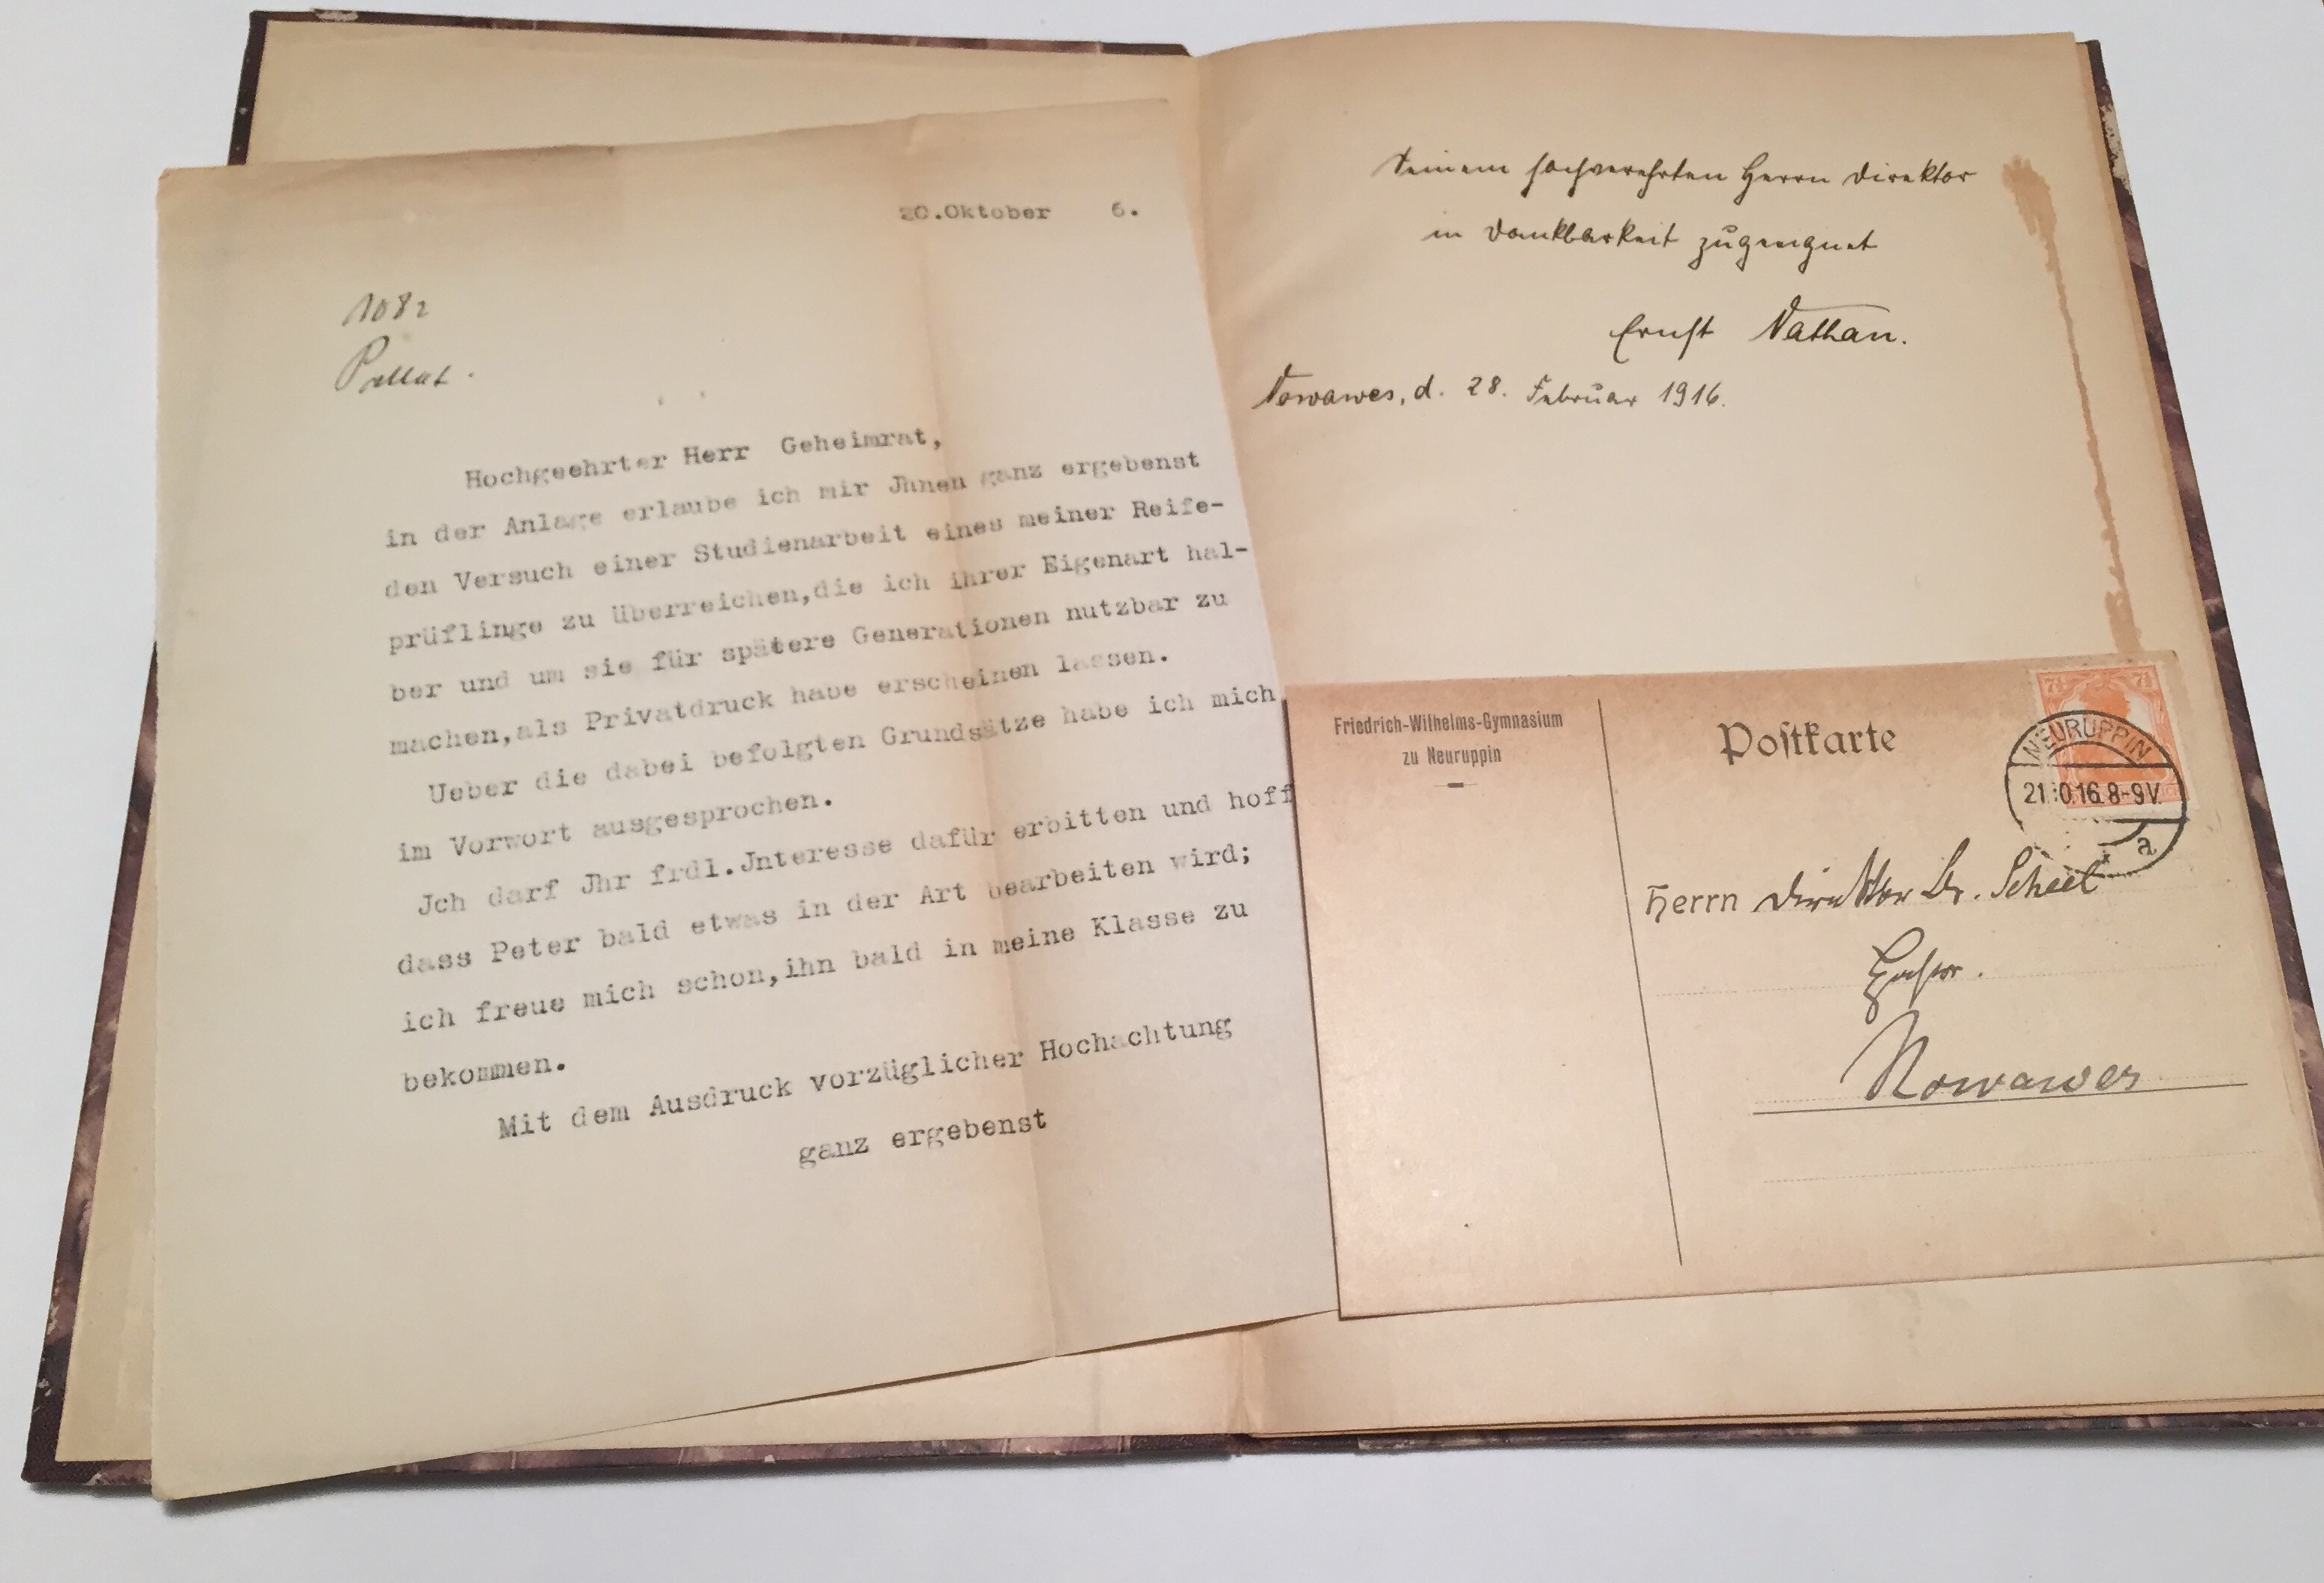 20.Oktober 6.
1082
Pallat.
Hochgeehrter Herr Geheimrat,
in der Anlage erlaube ich mir Jhnen ganz ergebenst
den Versuch einer Studienarbeit eines meiner Reife-
prüflinge zu überreichen,die ich ihrer Eigenart hal-
ber und um sie für spätere Generationen nutzbar zu
machen,als Privatdruck habe erscheinen lassen.
Ueber die dabei befolgten Grundsätze habe ich mich
im Vorwort ausgesprochen.
Jch darf Jhr frdl.Jnteresse dafür erbitten und hoff
dass Peter bald etwas in der Art bearbeiten wird;
ich freue mich schon,ihn bald in meine Klasse zu
bekommen.
Mit dem Ausdruck vorzüglicher Hochachtung
ganz ergebenst
Seinem hochverehrten Herrn Direktor
in Dankbarkeit zugeeignet
Ernst Nathan.
Nowawes, d. 28. Februar 1916.
Friedrich-Wilhelms-Gymnasium
zu Neuruppin
Postkarte
7½ 7½
NEURUPPIN
21.10.16.8-9V.
a
Herrn Direktor Dr. Scheel
Nowawes